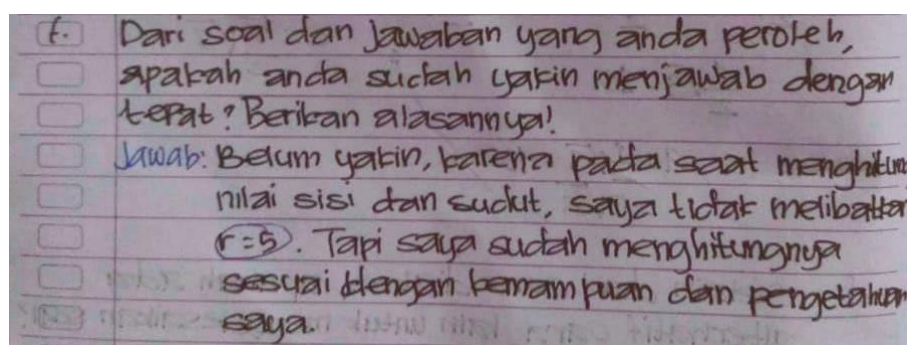 f. Dari soal dan jawaban yang anda peroleh,
apakah anda sudah yakin menjawab dengan
tepat? Berikan alasannya!
Jawab: Belum yakin, karena pada saat menghitung
nilai sisi dan sudut, saya tidak melibatkan
r=5. Tapi saya sudah menghitungnya
sesuai dengan kemampuan dan pengetahuan
saya.